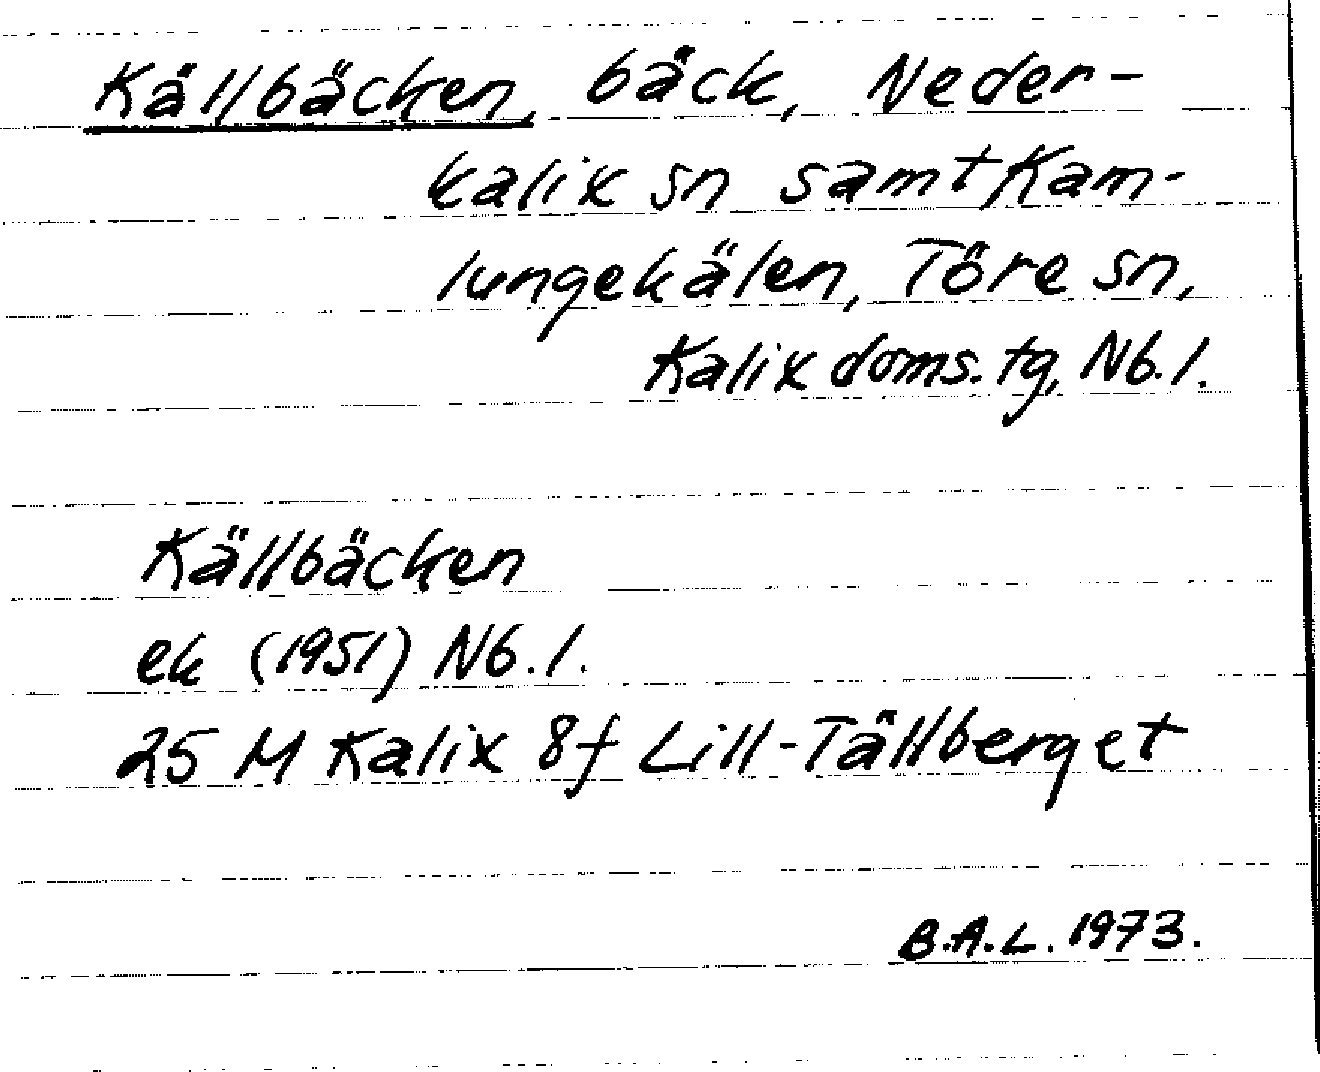 Källbäcken, bäck, Neder-
kalix sn samt Kam-
lungekälen, Töre sn,
Kalix doms. tg, Nb. l.
Källbäcken
ek (1951) Nb. l.
25 M Kalix 8f Lill-Tällberget
B.A.L. 1973.